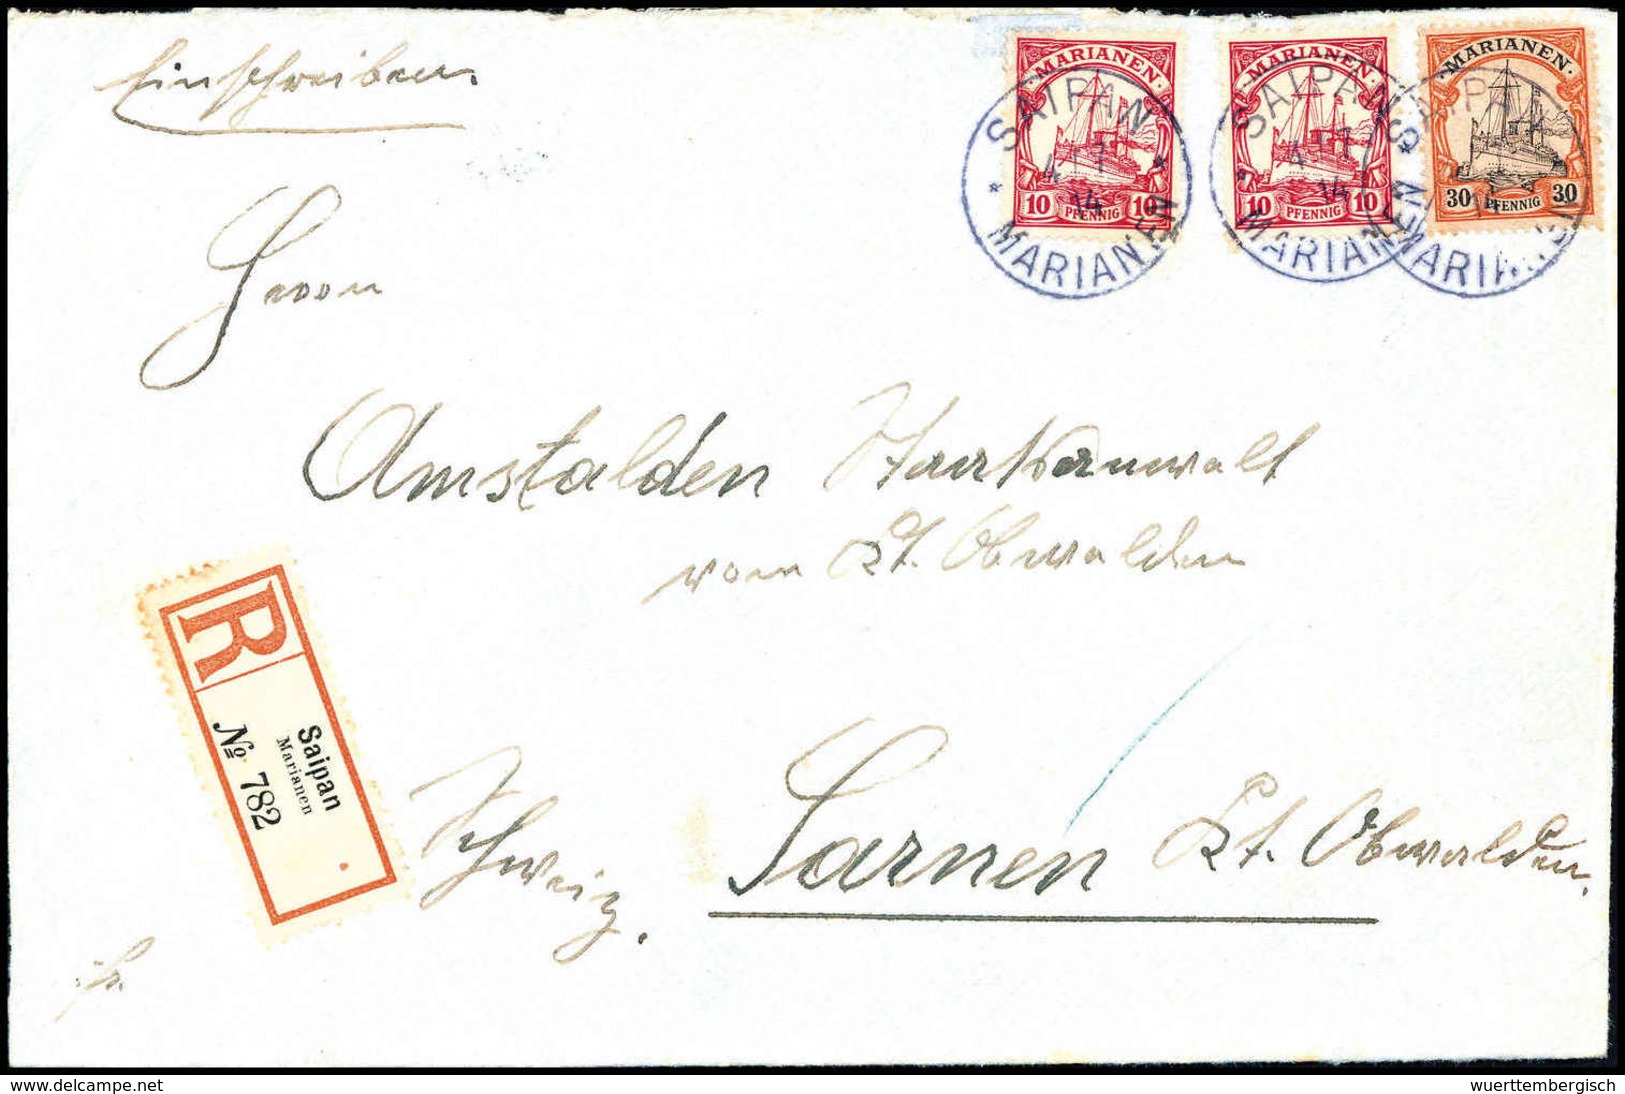 Einschreiben
MARIANEN
10 PFENNIG 10
SAIPAN
4 1 14
MARIANEN
MARIANEN
10 PFENNIG 10
SAIPAN
4 1 14
MARIANEN
MARIANEN
30 PFENNIG 30
SAIPAN
14
MARIANEN
Herrn
Amstalden Staatsanwalt
vom Kt. Obwalden
R
Saipan
Marianen
No 782
Sarnen Kt. Obwalden.
Schweiz.
delcampe.net
wuerttembergisch